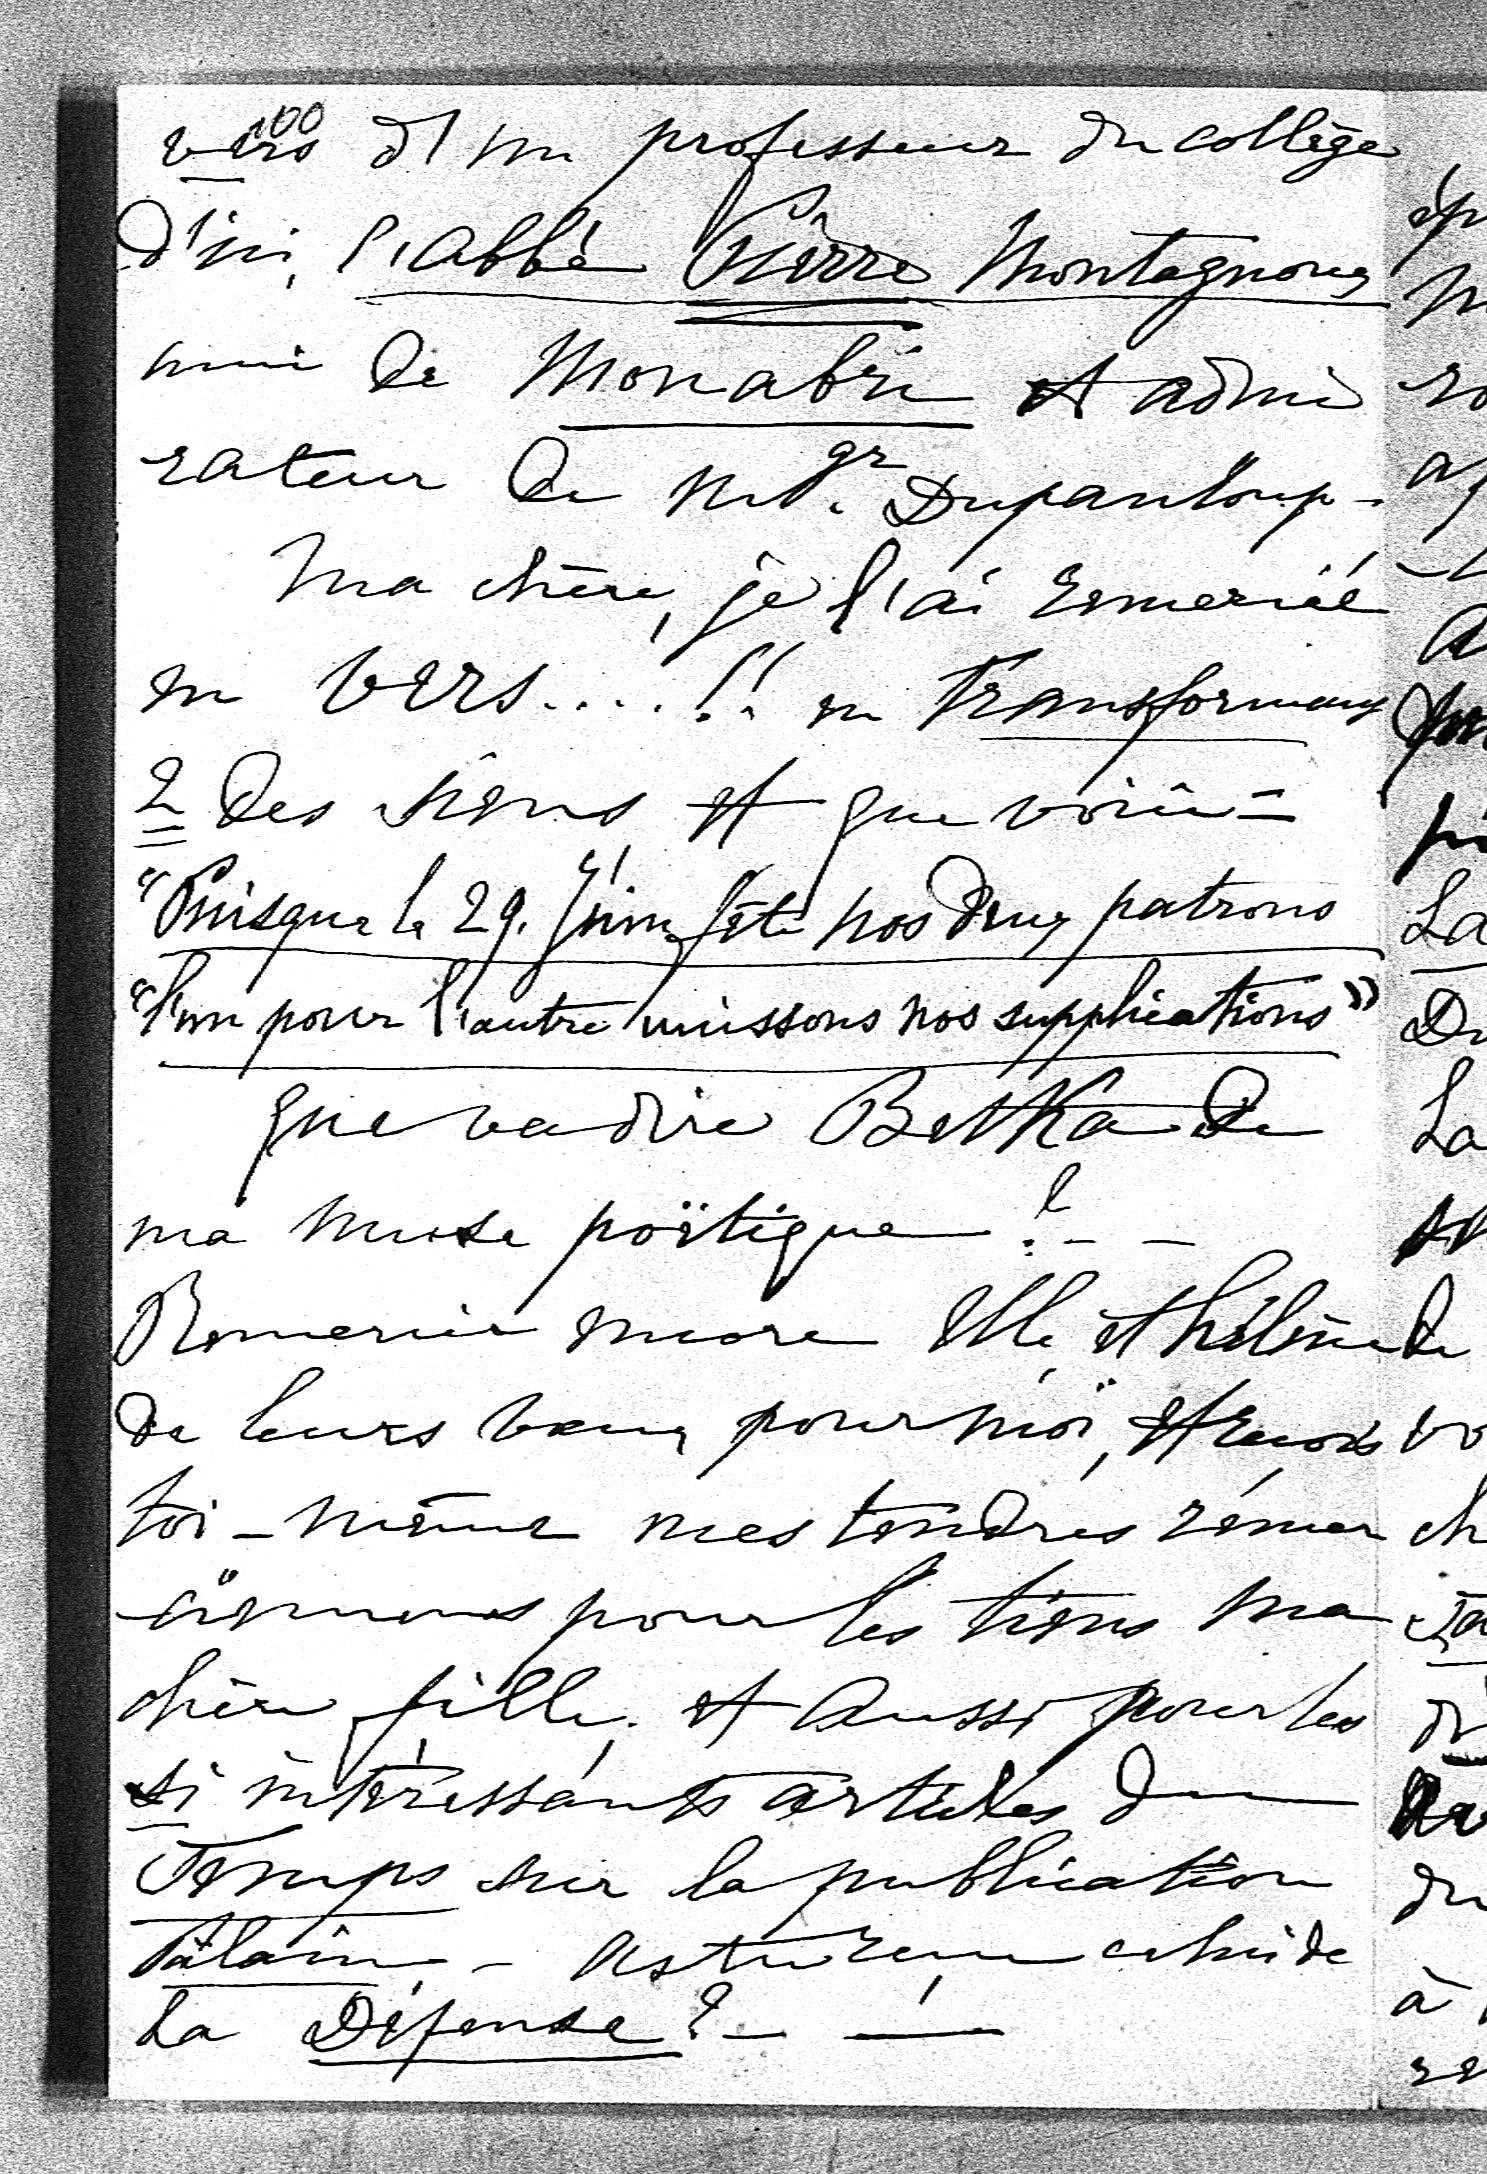 100
vers d'un professeur du collège
d'ici, l'abbé Pierre Montagnoux
ami de Monabri et admi
rateur de Mgr. Dupanloup -
Ma chère, je l'ai remercié
en vers....!! en transformant
2 des siens et que voici -
"Puisque le 29. Juin fête nos deux patrons
"l'un pour l'autre unissons nos supplications"
que va dire Betka de
ma muse poëtique ? - -
Remercie encore Elle et hélène
de leurs vœux pour moi, et reçois
toi-même mes tendres remer
-ciements pour les tiens ma
chère fille, et aussi pour les
si intéressants articles du
Temps sur la publication
Palain, - as tu reçu celui de
La Défense ? - —
ép
ro
La
Du
La
de
vo
ch
du
à